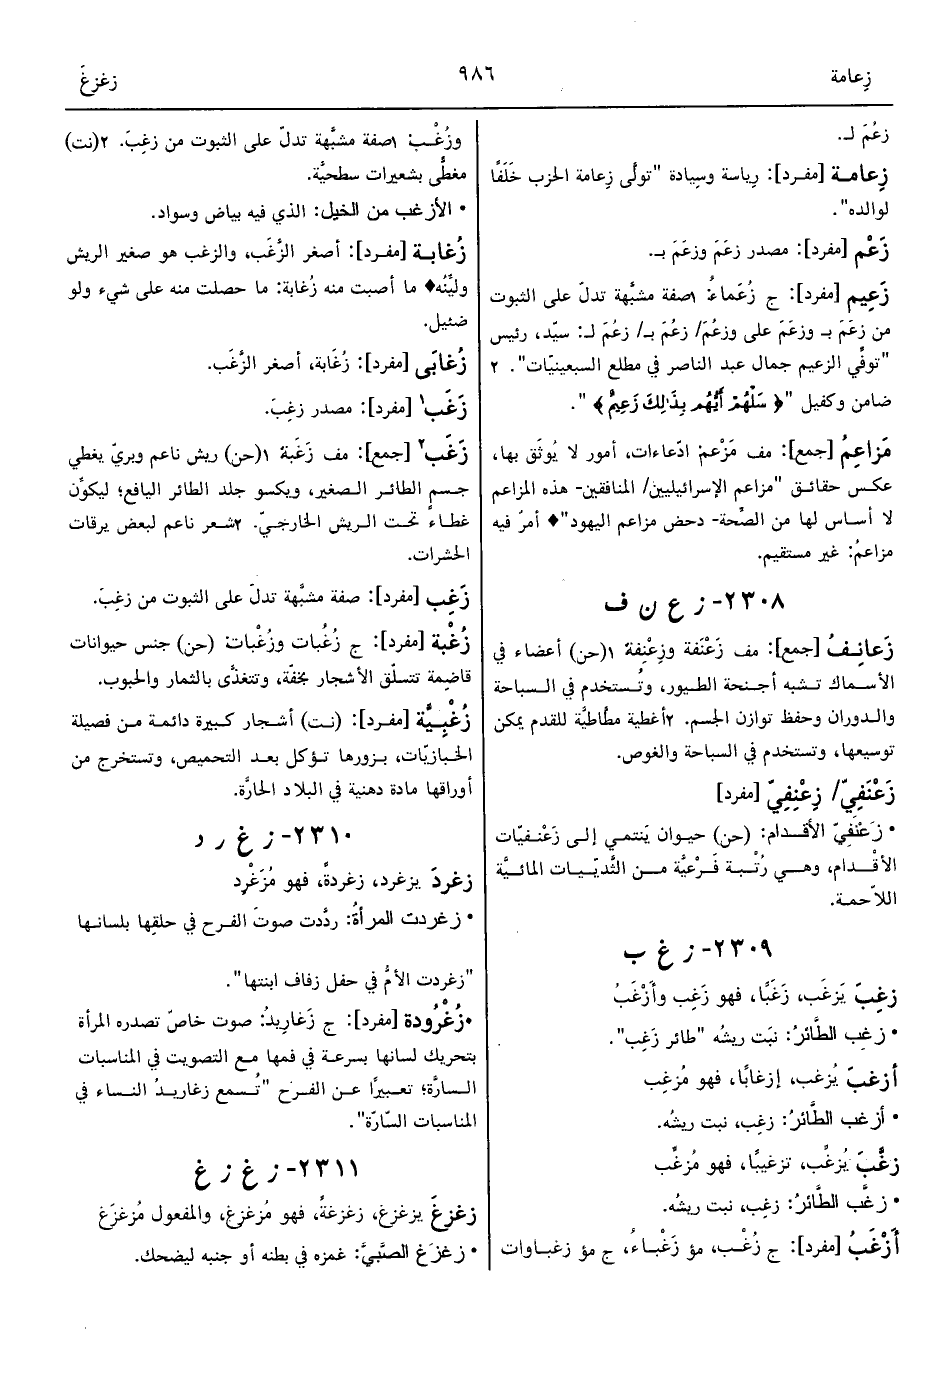 زعامة
٩٨٦
زغزغَ
زعُمَ لـ.
زِعامة [مفرد]: رياسة وسِيادة "تولَّى زعامة الحزب خَلَفًا
لوالده".
زَعْم [مفرد]: مصدر زعَمَ وزعَمَ بـ.
زَعيم [مفرد]: ج زُعَماءُ: ١صفة مشبَّهة تدلّ على الثبوت
من زعَمَ بـ وزعَمَ على وزعُمَ/ زعُمَ بـ/ زعُمَ لـ: سيّد، رئيس
"توفِّي الزعيم جمال عبد الناصر في مطلع السبعينيّات". ٢
ضامن وكفيل "﴿ سَلْهُمْ أَيُّهُم بِذَٰلِكَ زَعِيمٌ ﴾".
مَزاعِمُ [جمع]: مف مَزْعم: ادّعاءات، أمور لا يُوثَق بها،
عكس حقائق "مزاعم الإسرائيليين/ المنافقين- هذه المزاعم
لا أساس لها من الصِّحة- دحض مزاعم اليهود"♦ أمرٌ فيه
مزاعمُ: غير مستقيم.
٢٣٠٨- ز ع ن ف
زَعانِفُ [جمع]: مف زَعْنَفة وزِعْنِفة: ١(حن) أعضاء في
الأسماك تشبه أجنحة الطيور، وتُستخدم في السباحة
والدوران وحفظ توازن الجسم. ٢أغطية مطّاطيَّة للقدم يمكن
توسيعها، وتستخدم في السباحة والغوص.
زَعْنَفِيّ/ زِعْنِفِيّ [مفرد]
• زَعْنَفِيّ الأقدام: (حن) حيوان يَنتمي إلى زَعْنفيات
الأقْدام، وهي رُتْبة فَرْعيَّة من الثَّديّيات المائيَّة
اللاّحمة.
٢٣٠٩- ز غ ب
زغِبَ يَزغَب، زَغَبًا، فهو زَغِب وأَزْغَبُ
• زغِب الطَّائرُ: نبَت ريشُه "طائر زَغِب".
أزغبَ يُزغب، إزغابًا، فهو مُزغِب
• أزغب الطَّائرُ: زغِب، نبت ريشُه.
زغَّبَ يُزغِّب، تزغيبًا، فهو مُزغِّب
• زغَّب الطَّائرُ: زغِب، نبت ريشُه.
أَزْغَبُ [مفرد]: ج زُغْب، مؤ زَغْباءُ، ج مؤ زغباوات
وزُغْب: ١صفة مشبَّهة تدلّ على الثبوت من زغِبَ. ٢(نت)
مغطًّى بشعيرات سطحيَّة.
• الأزغب من الخيل: الذي فيه بياض وسواد.
زُغابة [مفرد]: أصغر الزَّغَب، والزغب هو صغير الريش
وليِّنُه♦ ما أصبت منه زُغابة: ما حصلت منه على شيء ولو
ضئيل.
زُغابَى [مفرد]: زُغَابة، أصغر الزَّغَب.
زَغَب١ [مفرد]: مصدر زغِبَ.
زَغَب٢ [جمع]: مف زَغَبة: ١(حن) ريش ناعم وبريّ يغطي
جسم الطائر الصغير، ويكسو جلد الطائر اليافع؛ ليكوِّن
غطاءً تحت الريش الخارجيّ. ٢شعر ناعم لبعض يرقات
الحشرات.
زَغِب [مفرد]: صفة مشبَّهة تدلّ على الثبوت من زغِبَ.
زُغْبة [مفرد]: ج زُغُبات وزُغْبات: (حن) جنس حيوانات
قاضِمة تتسلّق الأشجار بخفّة، وتتغذَّى بالثمار والحبوب.
زُغْبِيَّة [مفرد]: (نت) أشجار كبيرة دائمة من فصيلة
الخبازيّات، بزورها تؤكل بعد التحميص، وتستخرج من
أوراقها مادة دهنية في البلاد الحارَّة.
٢٣١٠- ز غ ر د
زغردَ يزغرد، زغردةً، فهو مُزَغْرِد
• زغردت المرأةُ: ردَّدت صوتَ الفرح في حلقِها بلسانها
"زغردت الأمُّ في حفل زفاف ابنتها".
•زُغْرُودة [مفرد]: ج زَغاريدُ: صوت خاصّ تصدره المرأة
بتحريك لسانها بسرعة في فمها مع التصويت في المناسبات
السارَّة؛ تعبيرًا عن الفرح "تُسمع زغاريدُ النساء في
المناسبات السّارّة".
٢٣١١- ز غ ز غ
زغزغَ يزغزغ، زغزغةً، فهو مُزغزِغ، والمفعول مُزغزَغ
• زغزَغ الصَّبيَّ: غمزه في بطنه أو جنبه ليضحك.